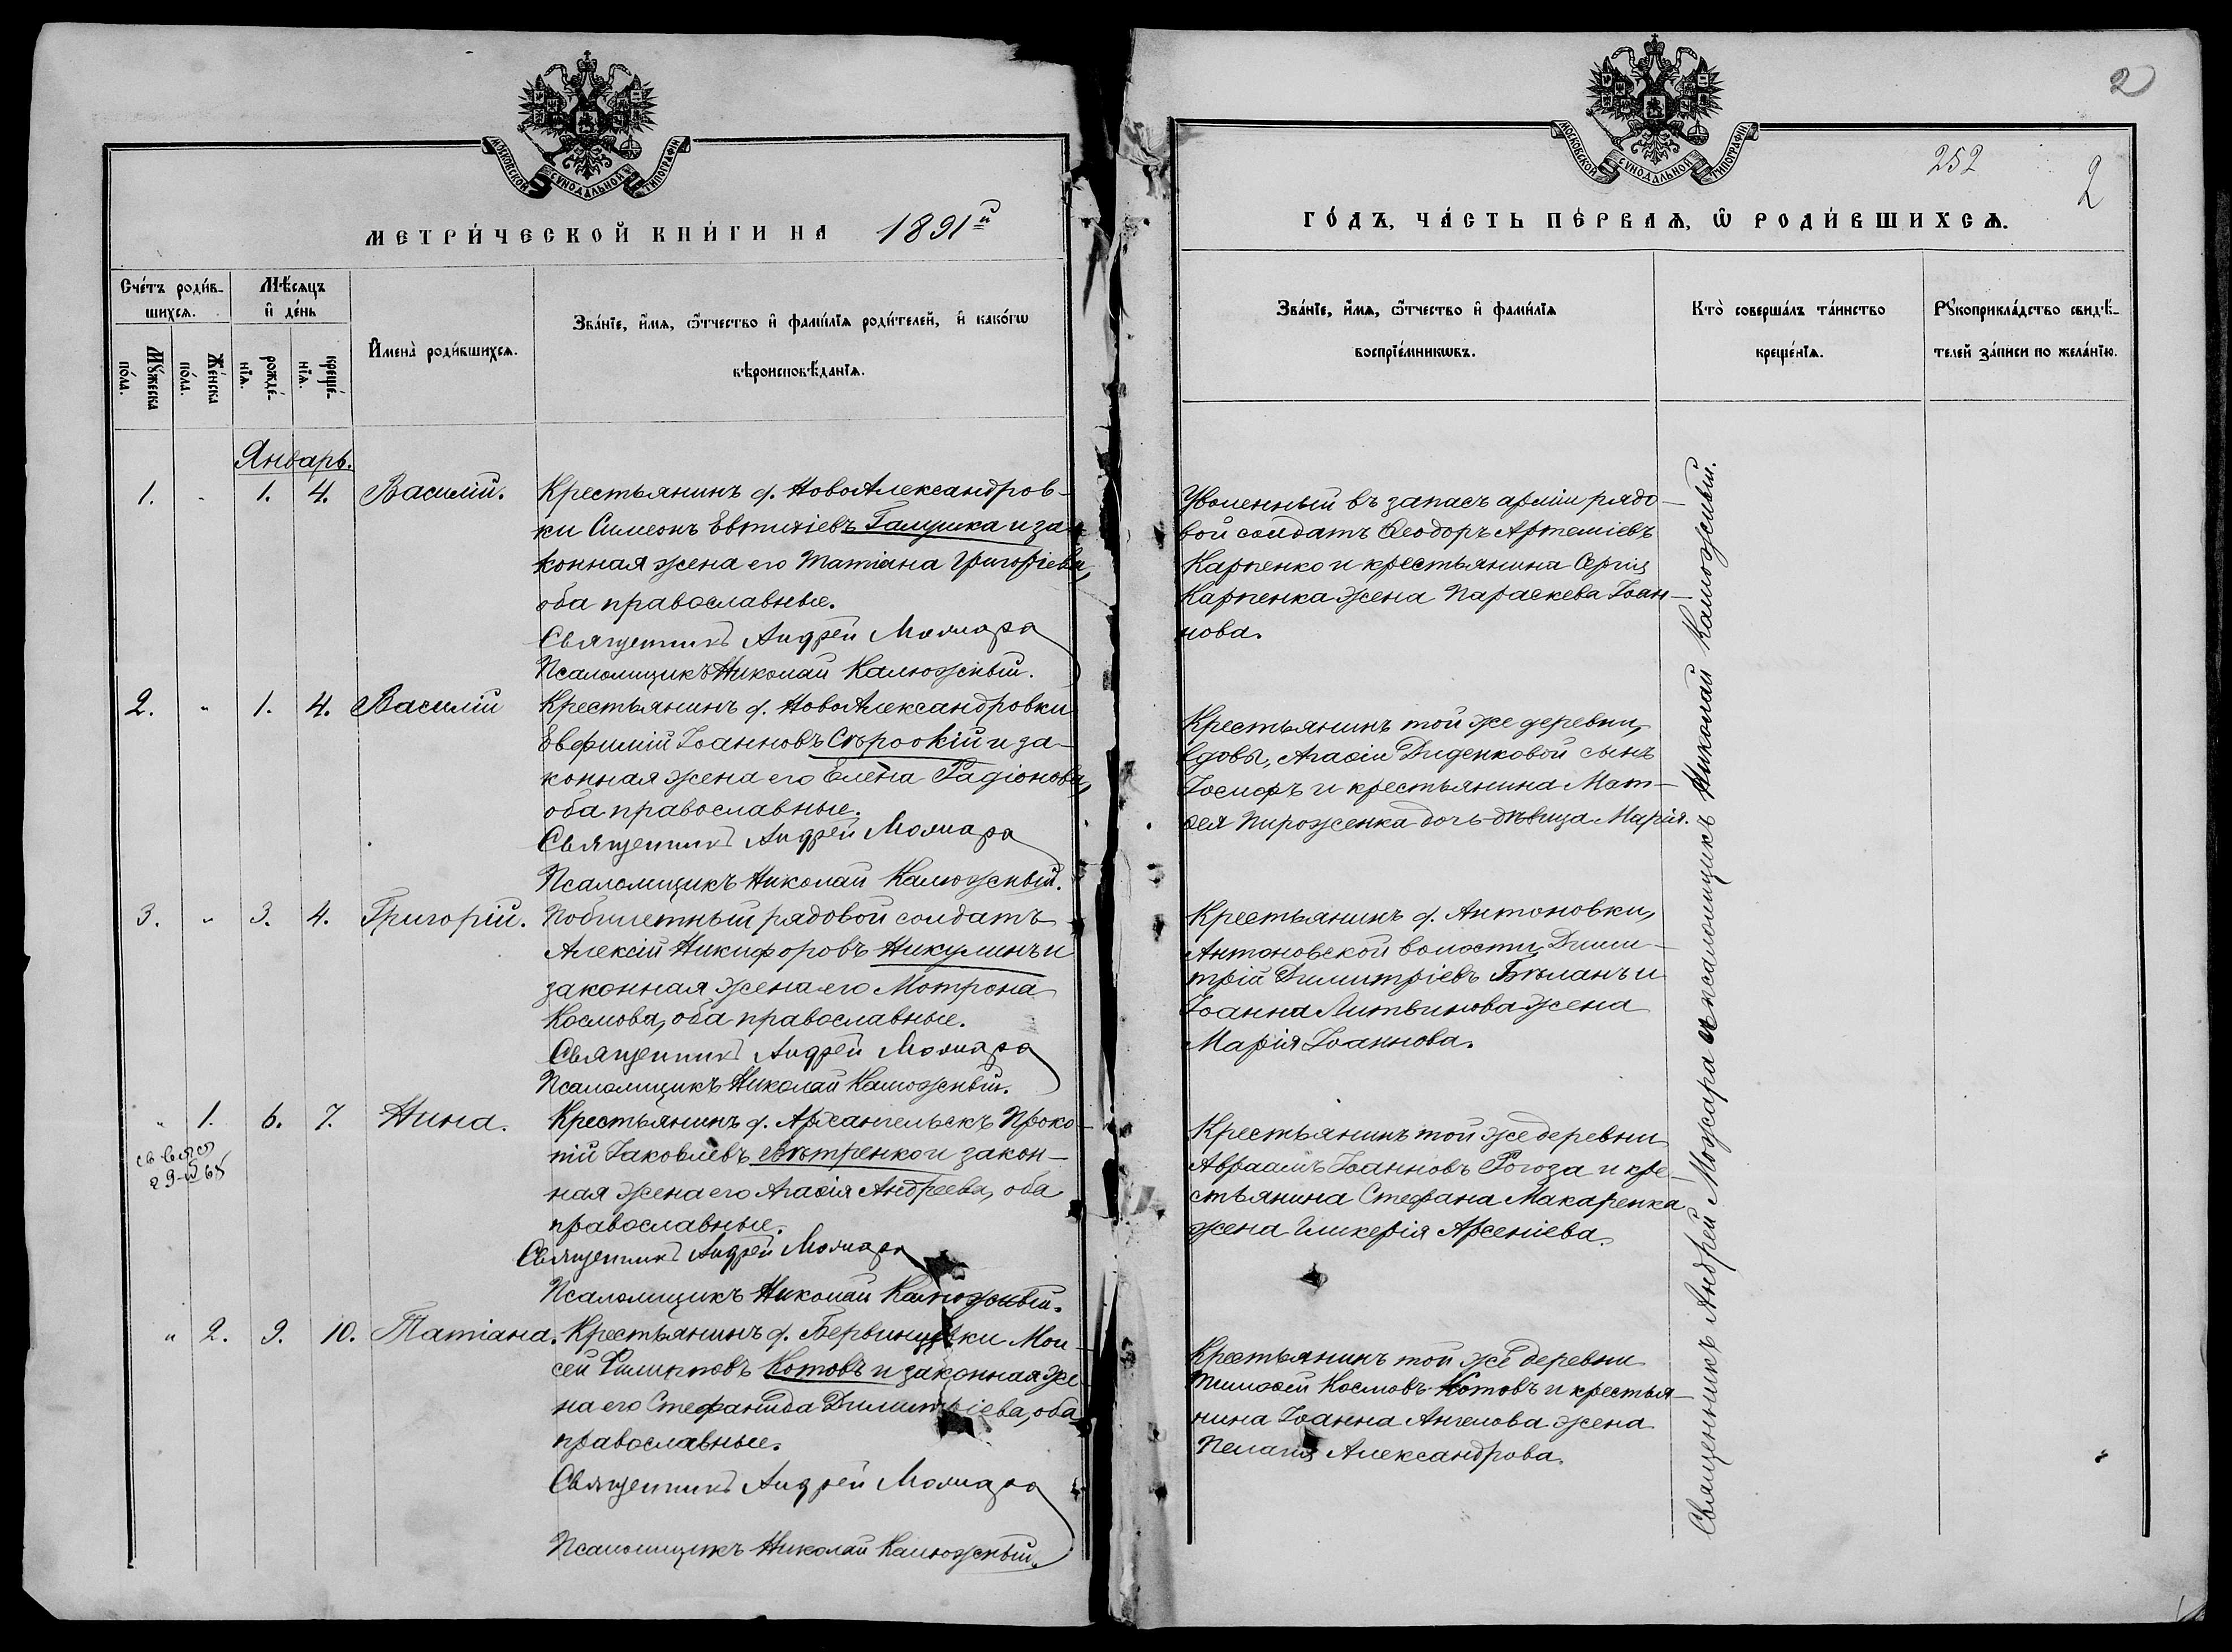 МОСКОВСКОЙ СѴНОДАЛЬНОЙ ТИПОГРАФІИ
МЕТРИ́ЧЕСКОЙ КНИ́ГИ НА 1891й
Сче́тъ роди́в-
шихсѧ.
Мѣ́сѧцъ
и҆ де́нь
Мꙋ́жеска
по́ла.
Же́нска
по́ла.
рожде́-
нїѧ.
креще́-
нїѧ.
И҆мена̀ роди́вшихсѧ.
Зва́нїе, и҆́мѧ, ѻ҆́тчество и҆ фами́лїѧ роди́телей, и҆ како́гѡ
вѣроисповѣ́данїѧ.
Январь.
1. „ 1. 4. Василій. Крестьянинъ д. НовоАлександров-
ки Симеонъ Евтихіевъ Галушка и за-
конная жена его Татіана Григоріева,
оба православные.
Священникъ Андрей Можара
Псаломщикъ Николай Калюжный.
2. „ 1. 4. Василій Крестьянинъ д. НовоАлександровки
Евфимій Іоанновъ Сѣроокій и за-
конная жена его Елена Радіонова,
оба православные.
Священникъ Андрей Можара
Псаломщикъ Николай Калюжный.
3. „ 3. 4. Григорій. Побилетный рядовой солдатъ
Алексій Никифоровъ Никулинъ и
законная жена его Мотрона
Космова, оба православные.
Священникъ Андрей Можара
Псаломщикъ Николай Калюжный.
„ 1. 6. 7. Нина. Крестьянинъ д. Архангельскъ Проко-
пій Іаковлевъ Вѣтренко и закон-
ная жена его Агаѳія Андреева, оба
православные.
Священникъ Андрей Можара
Псаломщикъ Николай Калюжный.
„ 2. 9. 10. Татіана. Крестьянинъ д. Бервинцовки Мои-
сей Филипповъ Котовъ и законная же-
на его Стефанида Димитріева, оба
православные.
Священникъ Андрей Можара
Псаломщикъ Николай Калюжный.
2
252
2
МОСКОВСКОЙ СѴНОДАЛЬНОЙ ТИПОГРАФІИ
ГО́ДЪ, ЧА́СТЬ ПЕ́РВАѦ, Ѡ҆ РОДИ́ВШИХСѦ.
Зва́нїе, и҆́мѧ, ѻ҆́тчество и҆ фами́лїѧ
воспрїе́мникѡвъ.
Кто̀ соверша́лъ та́инство
креще́нїѧ.
Рꙋкоприкла́дство свидѣ́-
телей за́писи по жела́нїю.
Уволенный въ запасъ арміи рядо-
вой солдатъ Ѳеодоръ Артеміевъ
Карпенко и крестьянина Сергія
Карпенка жена Параскева Іоан-
нова.
Крестьянинъ той же деревни,
вдовы, Агаѳіи Диденковой сынъ
Іосифъ и крестьянина Мат-
ѳея Пироженка дочь-дѣвица Марія.
Крестьянинъ д. Антоновки,
Антоновской волости, Дими-
трій Димитріевъ Бѣланъ и
Іоанна Литвинова жена
Марія Іоаннова.
Крестьянинъ той же деревни
Авраамъ Іоанновъ Рогоза и кре-
стьянина Стефана Макаренка
жена Гликерія Арсеніева.
Крестьянинъ той же деревни
Тимоѳей Космовъ Котовъ и крестья-
нина Іоанна Ангелова жена
Пелагія Александрова.
Священникъ Андрей Можара и псаломщикъ Николай Калюжный.